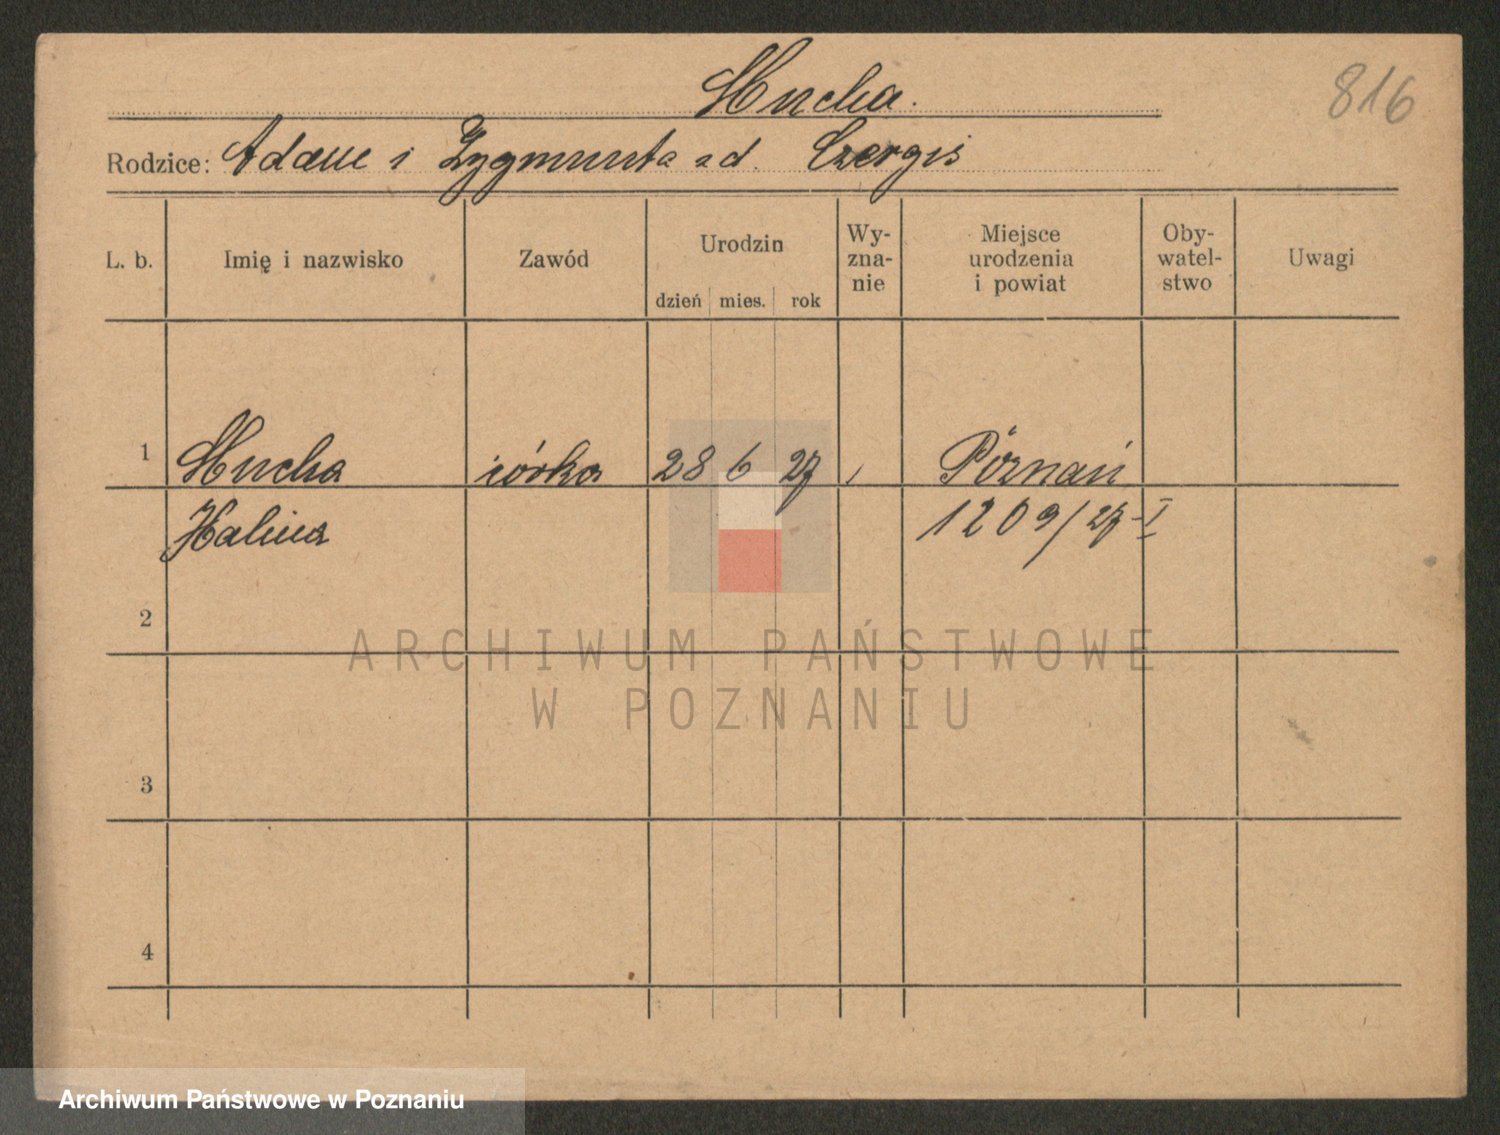 Mucha.
816
Rodzice: Adam i Zygmunta zd. Czergis
L. b. Imię i nazwisko Zawód Urodzin Wy- zna- nie Miejsce urodzenia i powiat Oby- watel- stwo Uwagi
dzień mies. rok
1 Mucha córka 28 6 27 , Poznań
Halina 1209/27-I
2
ARCHIWUM PAŃSTWOWE
W POZNANIU
3
4
Archiwum Państwowe w Poznaniu